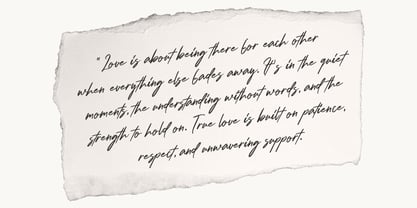 " Love is about being there for each other
when everything else fades away. It's in the quiet
moments, the understanding without words, and the
strength to hold on. True love is built on patience,
respect, and unwavering support.